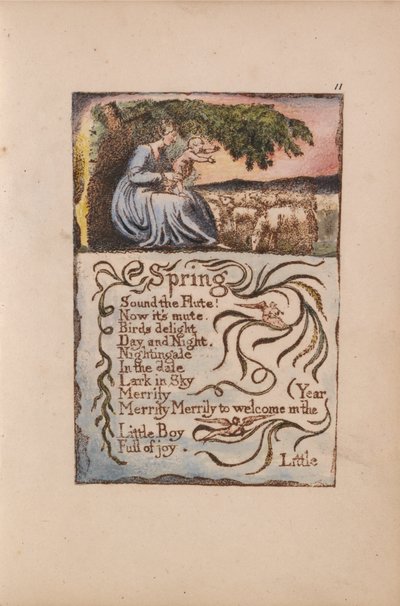 11
Spring
Sound the Flute!
Now it's mute.
Birds delight
Day and Night.
Nightingale
In the dale
Lark in Sky
Merrily
(Year
Merrily Merrily to welcome in the
Little Boy
Full of joy.
Little